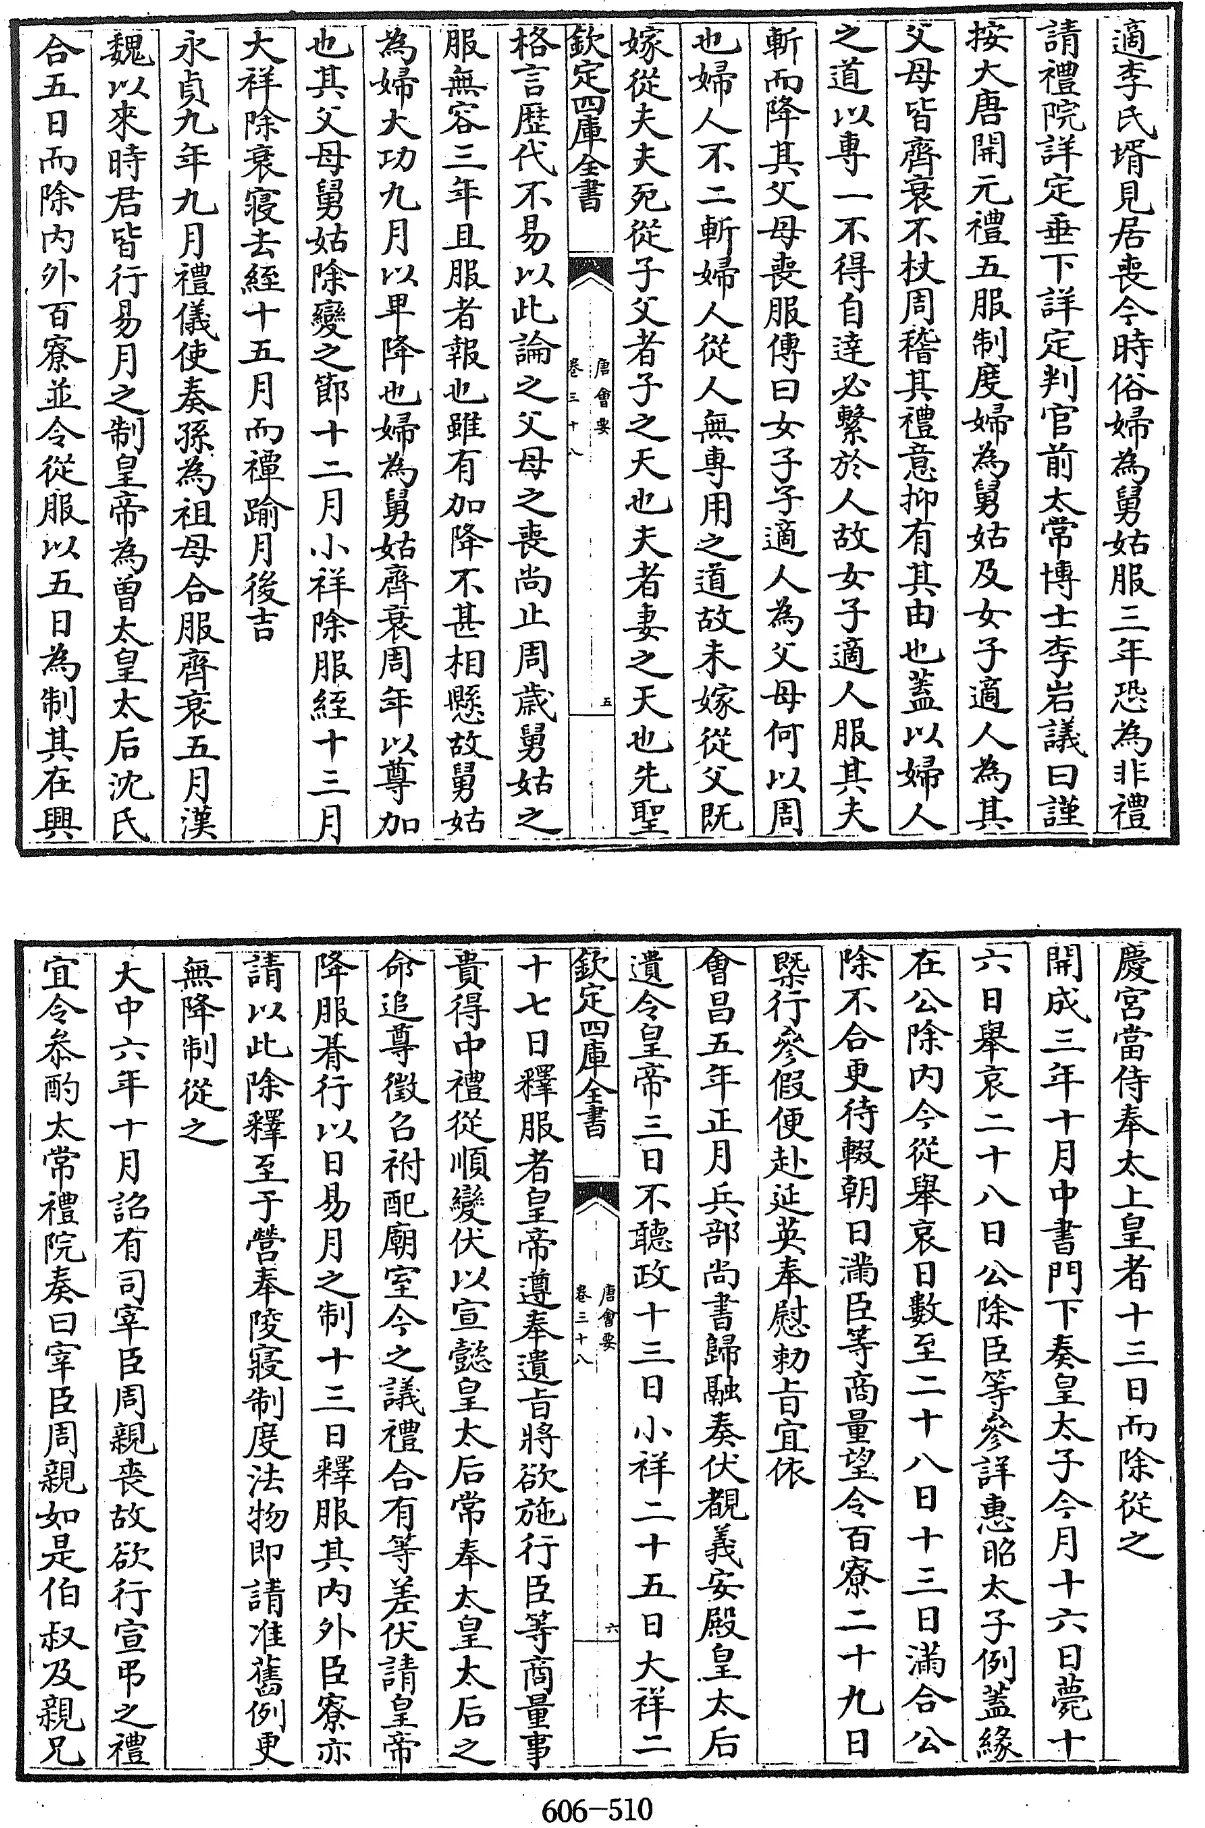 適李氏壻見居喪今時俗婦為舅姑服三年恐為非禮
請禮院詳定垂下詳定判官前太常博士李岩議曰謹
按大唐開元禮五服制度婦為舅姑及女子適人為其
父母皆齊衰不杖周稽其禮意抑有其由也蓋以婦人
之道以專一不得自達必繫於人故女子適人服其夫
斬而降其父母喪服傳曰女子子適人為父母何以周
也婦人不二斬婦人從人無專用之道故未嫁從父既
嫁從夫夫死從子父者子之天也夫者妻之天也先聖
欽定四庫全書
唐會要
卷三十八
五
格言歷代不易以此論之父母之喪尚止周歲舅姑之
服無容三年且服者報也雖有加降不甚相懸故舅姑
為婦大功九月以卑降也婦為舅姑齊衰周年以尊加
也其父母舅姑除變之節十二月小祥除服絰十三月
大祥除衰寢去絰十五月而禫踰月後吉
永貞九年九月禮儀使奏孫為祖母合服齊衰五月漢
魏以來時君皆行易月之制皇帝為曾太皇太后沈氏
合五日而除內外百寮並令從服以五日為制其在興
慶宮當侍奉太上皇者十三日而除從之
開成三年十月中書門下奏皇太子今月十六日薨十
六日舉哀二十八日公除臣等參詳惠昭太子例蓋緣
在公除內今從舉哀日數至二十八日十三日滿合公
除不合更待輟朝日滿臣等商量望令百寮二十九日
槩行參假便赴延英奉慰勅旨宜依
會昌五年正月兵部尚書歸融奏伏覩義安殿皇太后
遺令皇帝三日不聽政十三日小祥二十五日大祥二
欽定四庫全書
唐會要
卷三十八
六
十七日釋服者皇帝遵奉遺旨將欲施行臣等商量事
貴得中禮從順變伏以宣懿皇太后常奉太皇太后之
命追尊徵名祔配廟室今之議禮合有等差伏請皇帝
降服朞行以日易月之制十三日釋服其內外臣寮亦
請以此除釋至于營奉陵寢制度法物即請准舊例更
無降制從之
大中六年十月詔有司宰臣周親喪故欲行宣弔之禮
宜令叅酌太常禮院奏曰宰臣周親如是伯叔及親兄
606-510